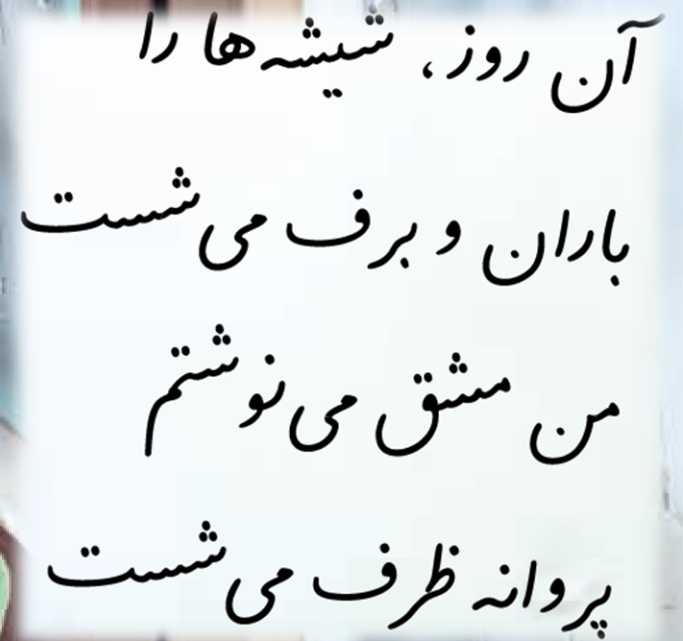 آن روز، شیشه‌ها را
باران و برف می‌شست
من مشق می‌نوشتم
پروانه ظرف می‌شست